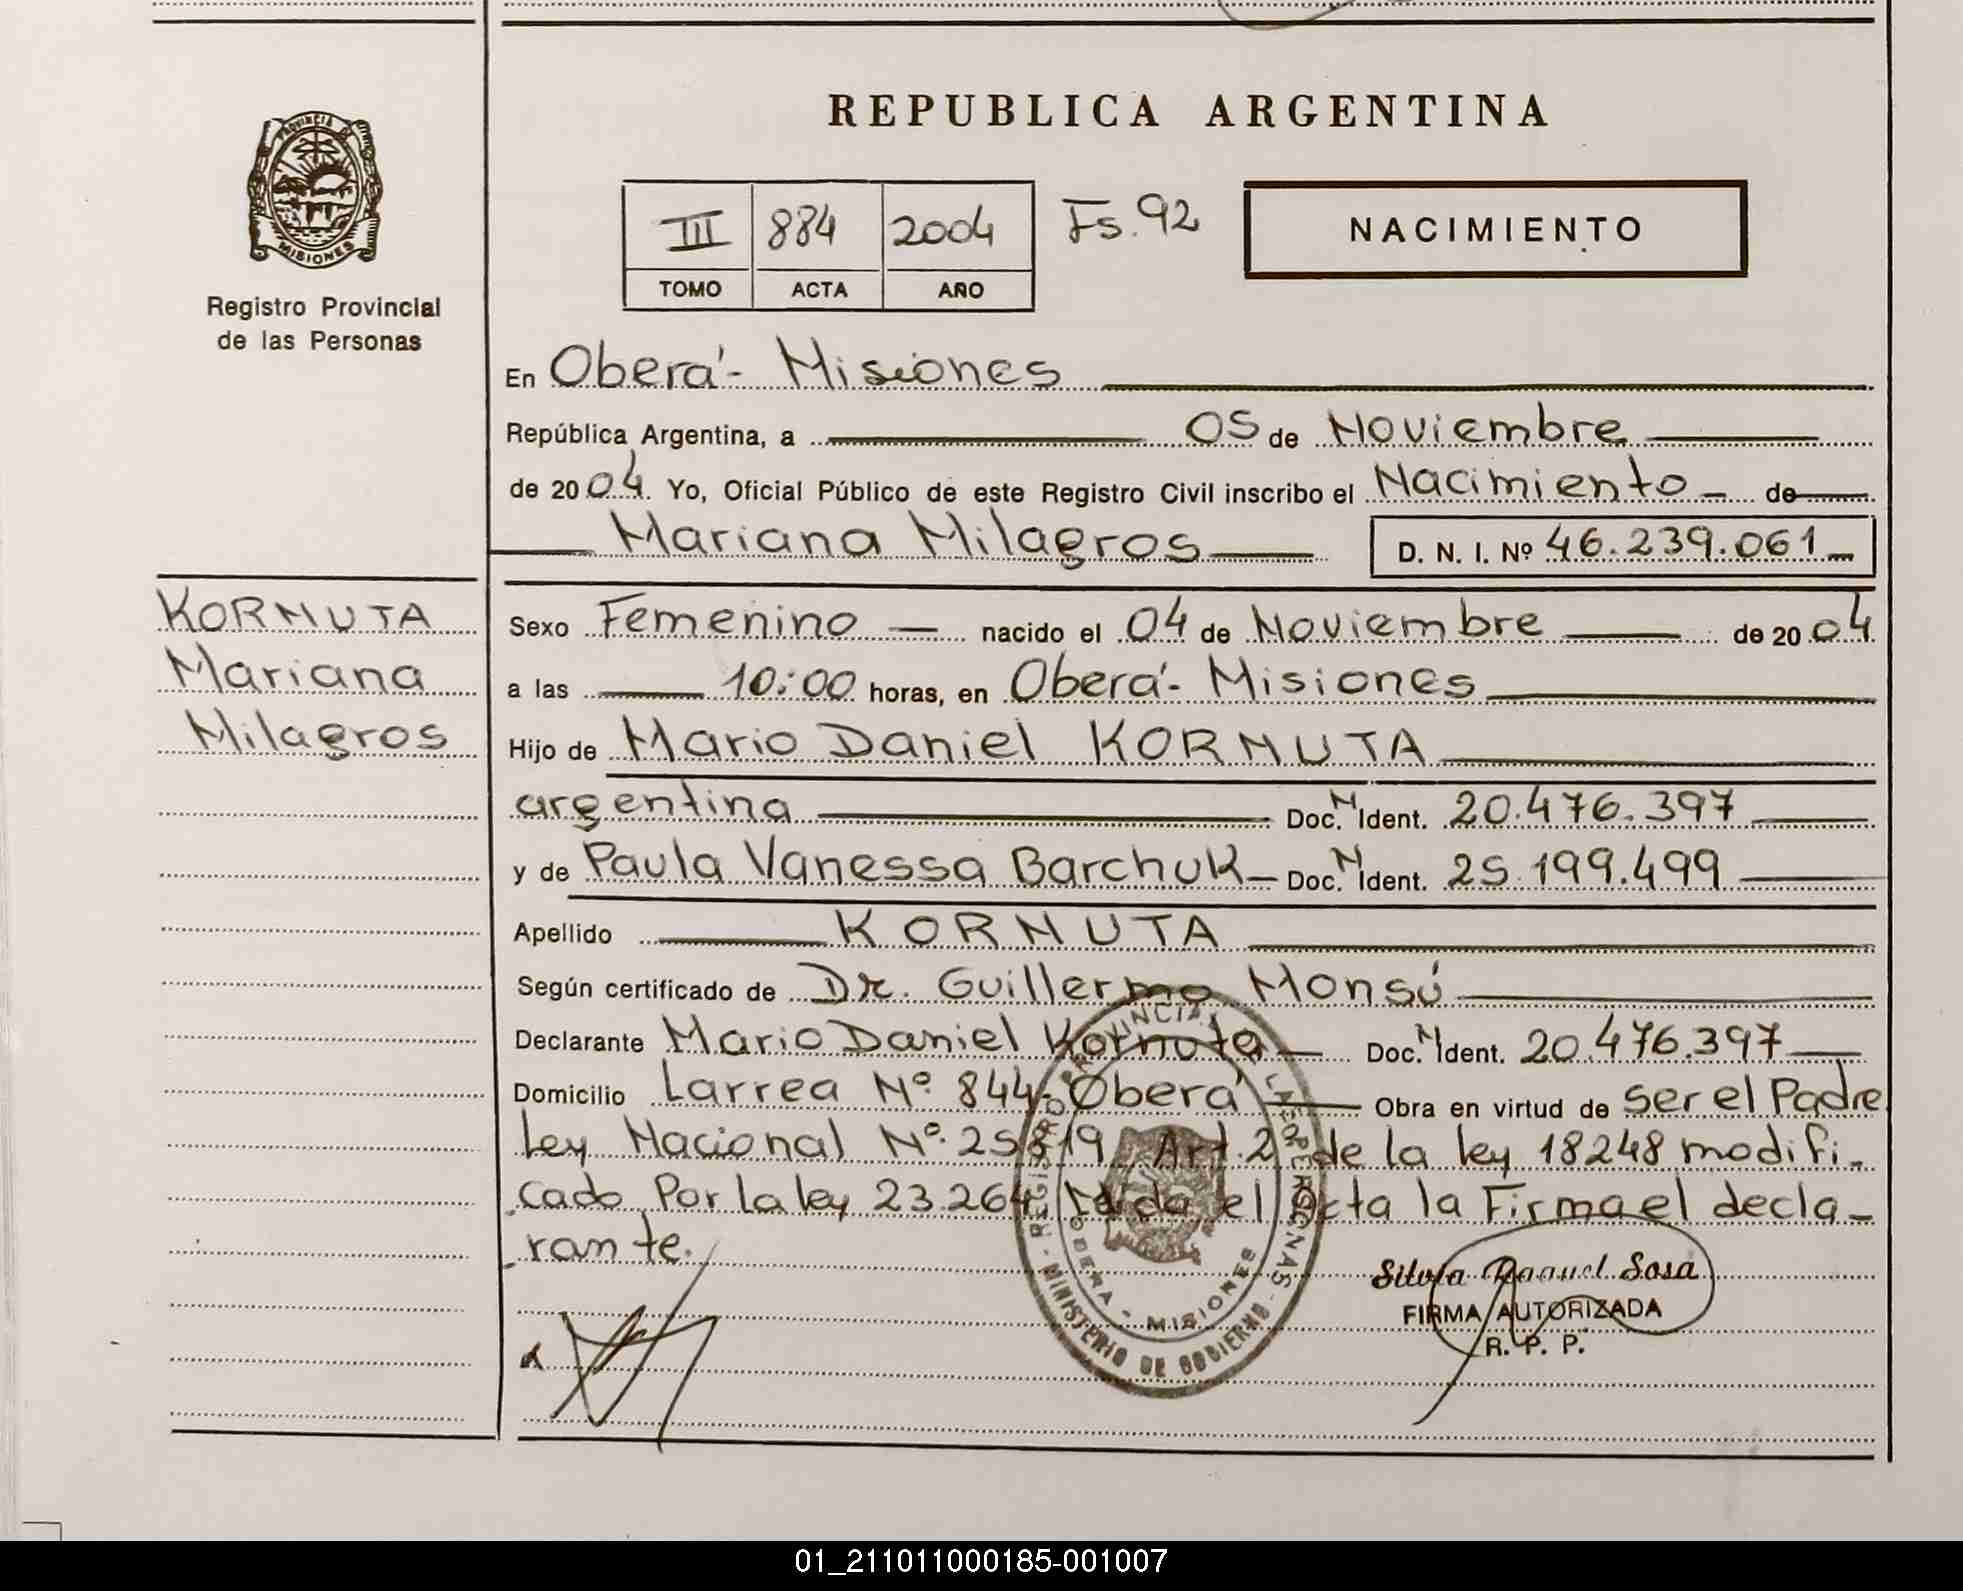 REPUBLICA ARGENTINA
PROVINCIA DE
MISIONES
Registro Provincial
de las Personas
III 884 2004 Fs. 92
TOMO ACTA AÑO
NACIMIENTO
En Oberá - Misiones
República Argentina, a 05 de Noviembre
de 2004. Yo, Oficial Público de este Registro Civil inscribo el Nacimiento - de
Mariana Milagros D. N. I. Nº 46.239.061
KORNUTA
Mariana
Milagros
Sexo Femenino - nacido el 04 de Noviembre de 2004
a las 10:00 horas, en Oberá - Misiones
Hijo de Mario Daniel KORNUTA
argentina Doc. N Ident. 20.476.397
y de Paula Vanessa Barchuk - Doc. N Ident. 25.199.499
Apellido KORNUTA
Según certificado de Dr. Guillermo Monsú
Declarante Mario Daniel Kornuta - Doc. N Ident. 20.476.397
Domicilio Larrea Nº 844 - Oberá - Obra en virtud de ser el Padre
Ley Nacional Nº 25819 Art. 2 de la ley 18248 modifi-
cado Por la ley 23.264 Leída el acta la Firma el decla-
rante.
REGISTRO PROVINCIAL DE LAS PERSONAS
OBERA - MISIONES
MINISTERIO DE GOBIERNO
Silvia Raquel Sosa
FIRMA AUTORIZADA
R. P. P.
01_211011000185-001007